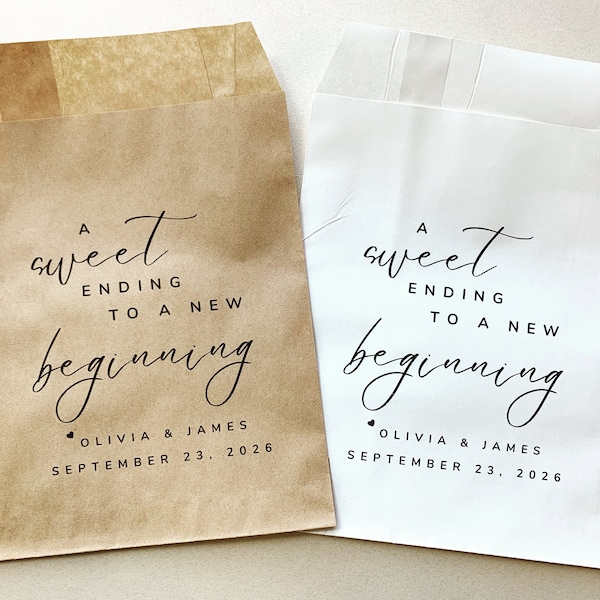 A
sweet
ENDING
TO A NEW
beginning
OLIVIA & JAMES
SEPTEMBER 23, 2026
A
sweet
ENDING
TO A NEW
beginning
OLIVIA & JAMES
SEPTEMBER 23, 2026